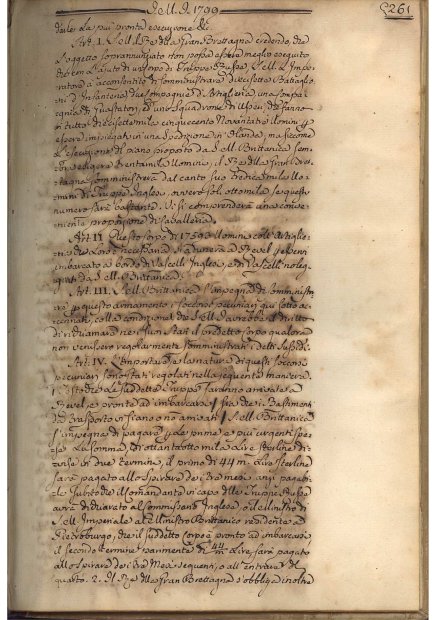 Dell. D. 1799
261
darle la più pronta esecuzione &c.
Art. I. S. M. il Re della Gran Brettagna credendo, che
l'oggetto sopranunziato non possa essere meglio eseguito
che con l'aiuto di un Corpo di Truppe Russe, S. M. l'Impe-
ratore acconsente di somministrare diecisette Battaglio-
ni d'Infanteria, due compagnie d'Artiglieria, una compa-
gnia di Guastatori, ed uno Squadrone di Usseri che fanno
in tutto diecisette mila cinquecento Novantatre Uomini p
essere impiegati in una Spedizione in Olanda, ma siccome
l'esecuzione del piano proposto da S. M. Brittanica sem-
bra esigere trentamila Uomini, il Re della Gran Bret-
tagna somministrerà dal canto suo tredici mila Uo-
mini di Truppe Inglesi, ovvero sol. otto mila se questo
numero sarà bastante. Vi si comprenderà una conve-
niente proporzione di Cavalleria.
Art. II Questo Corpo di 17593 Uomini coll'Artiglie-
ria si radunerà a Revel p esservi
imbarcato a bordo di Vascelli Inglesi, o di Vascelli noleg-
giati da S. M. Brittanica.
Art. III. S. M. Brittanica s'impegna di somministrare
p questo armamento i soccorsi pecuniarj qui sotto ac-
cennati, colla condizione che S. M. avrebbe il diritto
di richiamare ne' suoi Stati il predetto corpo qualora
non venissero regolarmente somministrati i detti Sussidj.
Art. IV. L'Importare e la natura di questi soccorsi
pecuniarj sono stati regolati nella seguente maniera.
1. Tosto che le suddette Truppe saranno arrivate a
Revel, e pronte ad imbarcarsi / sia che i Bastimenti
da trasporto vi siano o no arrivati / S. M. Brittanica
s'impegna di pagare p le prime e più urgenti spe-
se la somma di ottantotto mila Lire Sterline di-
visa in due termini, il primo di 44 m. Lire Sterline
sarà pagato allo spirare de' tre mesi, anzi pagabi-
le subito che il Comandante in capo delle Truppe Russe
avrà dichiarato al Commissario Inglese, o il Ministro di
S. M. Imperiale al Ministro Brittanico residente a
Pietroburgo, che il suddetto Corpo è pronto ad imbarcarsi
il secondo termine parimente di 44 m Lire, sarà pagato
allo spirare de i tre Mesi seguenti, o all'entrare del
quarto. 2. Il Re della Gran Brettagna s'obbliga inoltre